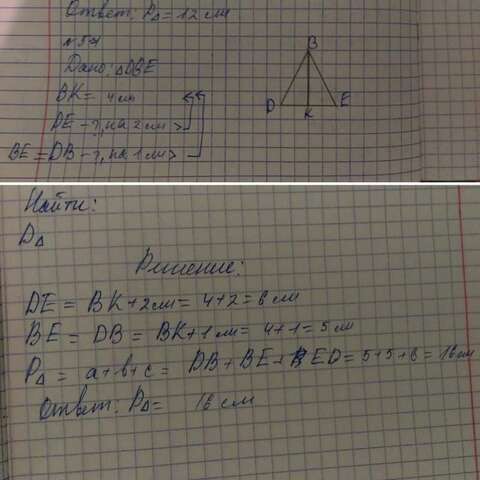 Ответ: P△ = 12 см
№57
Дано: △DBE
BK = 4 см
DE - ?, на 2 см >
BE = DB - ?, на 1 см >
B
D
K
E
Найти:
D△
Решение:
DE = BK + 2 см = 4 + 2 = 6 см
BE = DB = BK + 1 см = 4 + 1 = 5 см
P△ = a + b + c = DB + BE + ED = 5 + 5 + 6 = 16 см
Ответ: P△ = 16 см